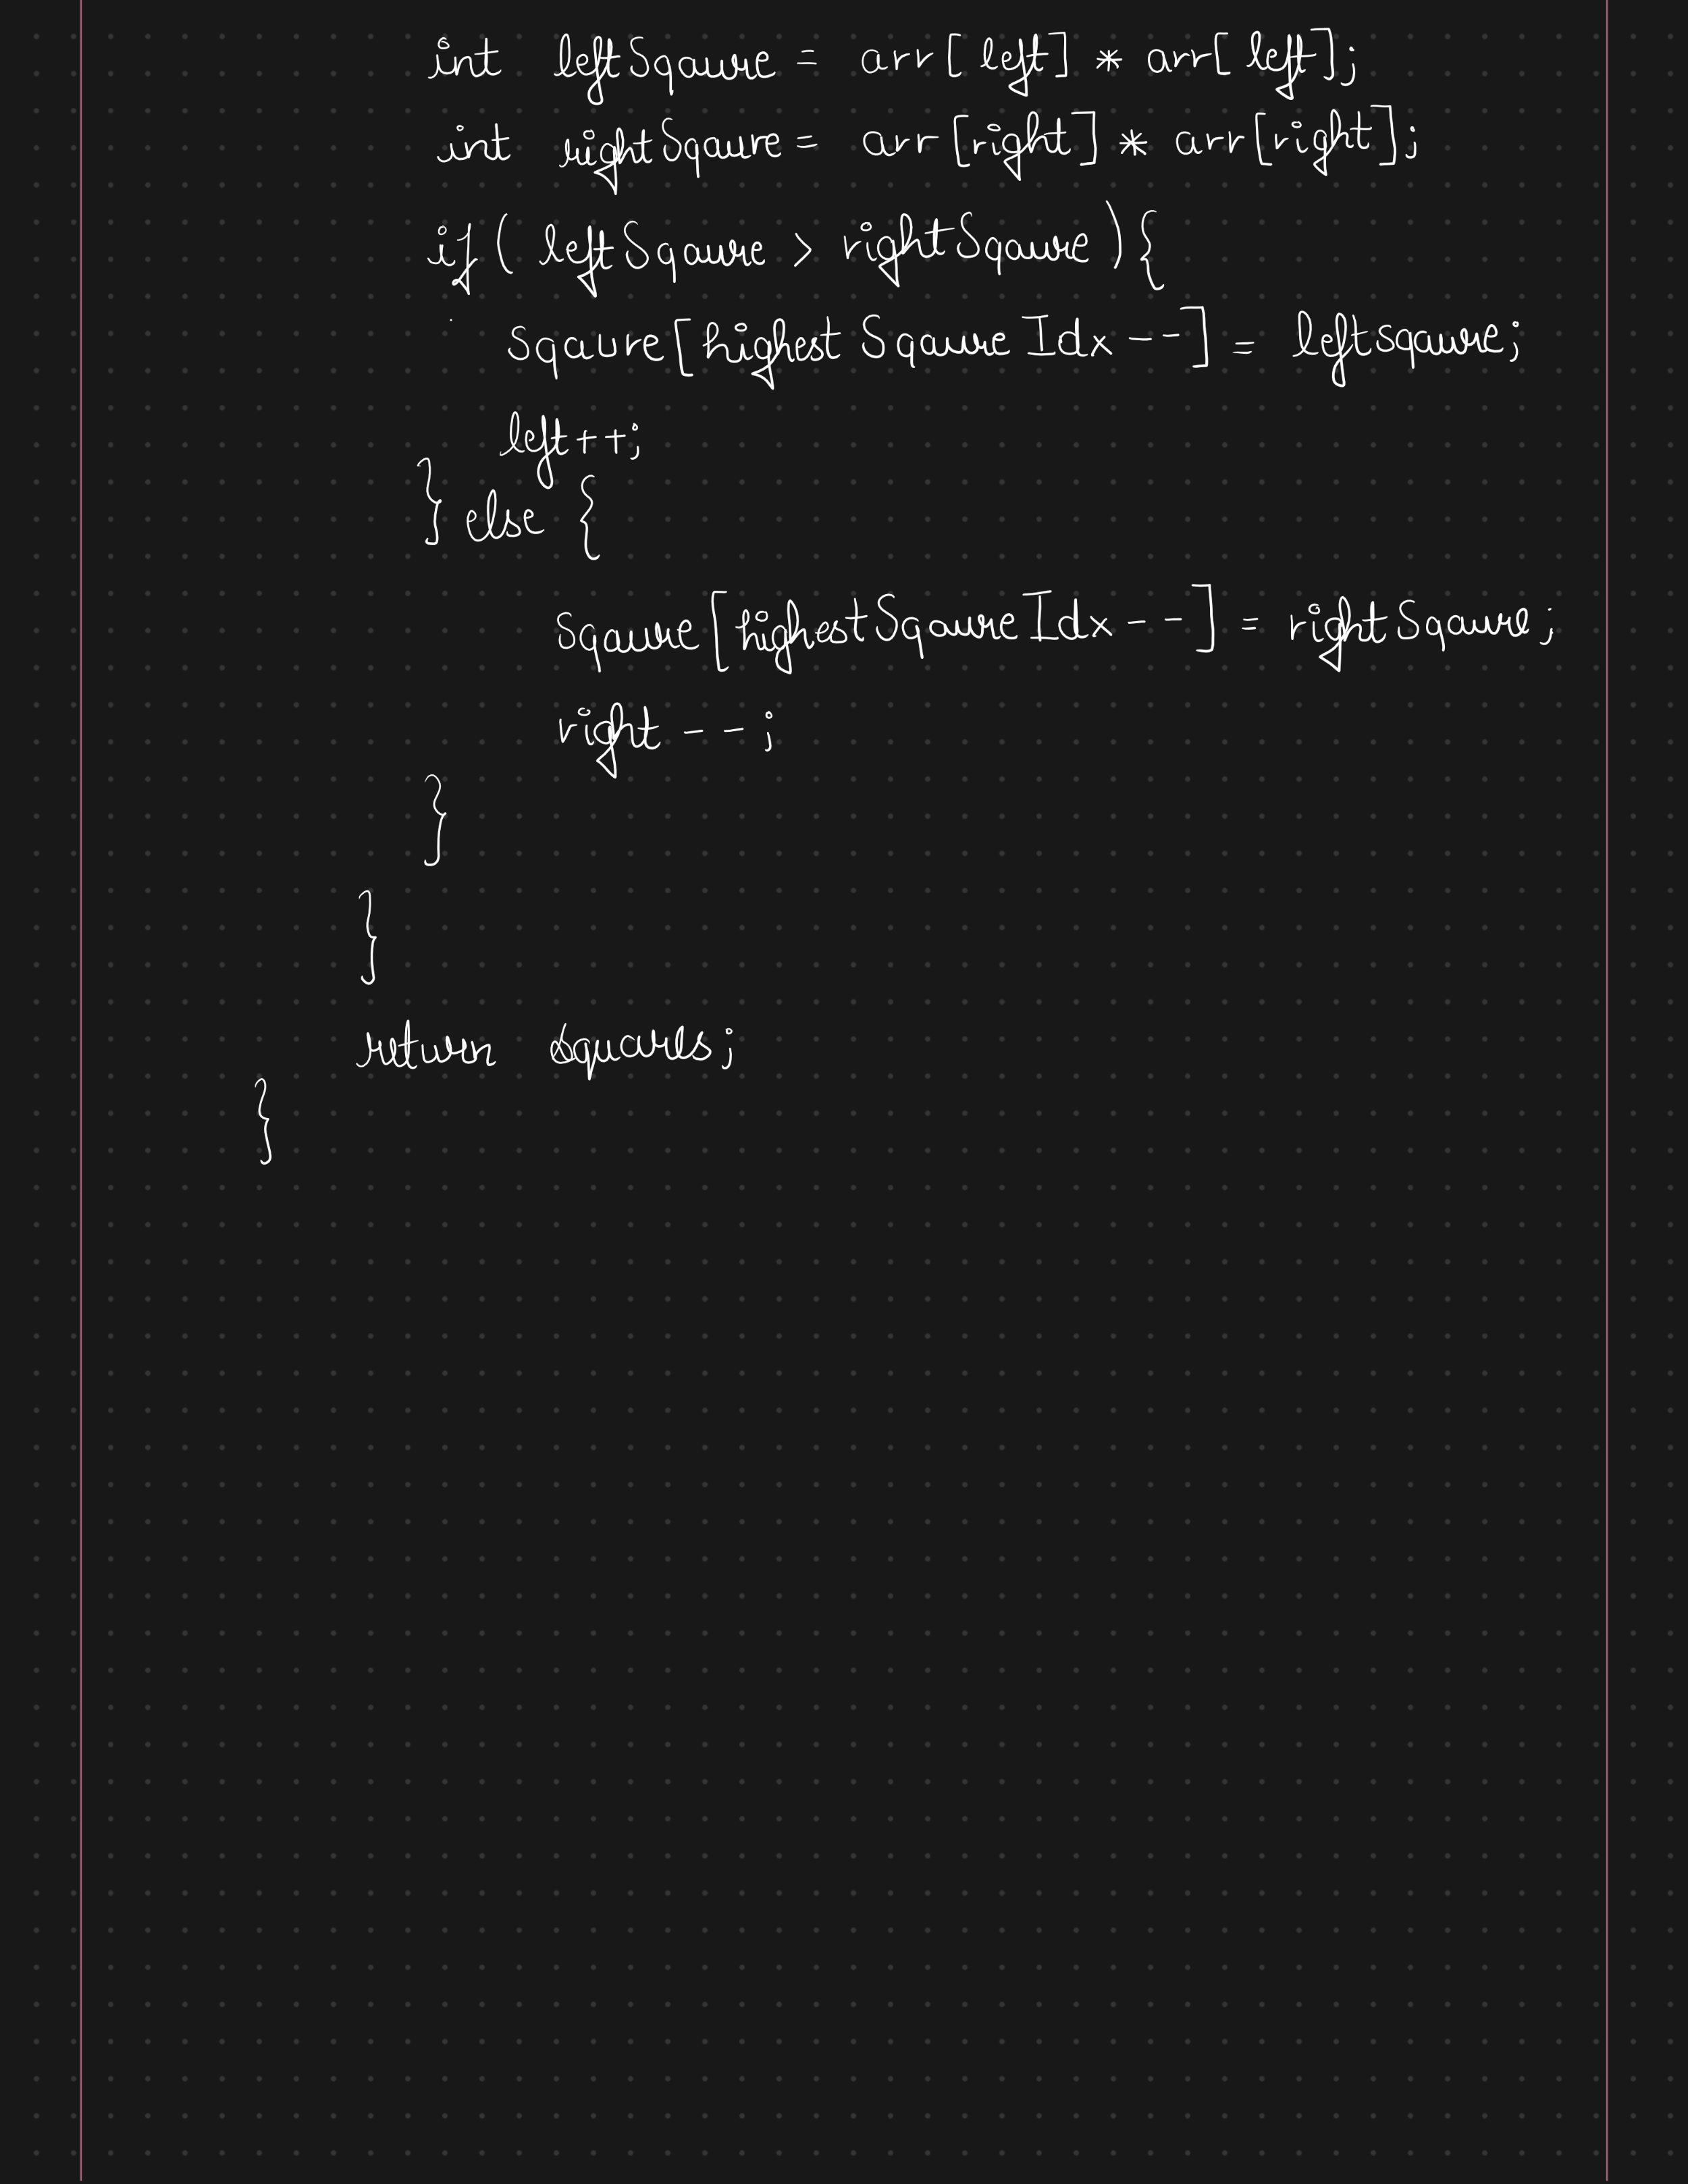 int leftSqaure = arr[left] * arr[left];
int rightSqaure = arr[right] * arr[right];
if( leftSqaure > rightSqaure ){
sqaure[highest Sqaure Idx --] = leftsqaure;
left++;
} else {
sqaure[highestSqaureIdx --] = rightSqaure;
right --;
}
}
return squares;
}